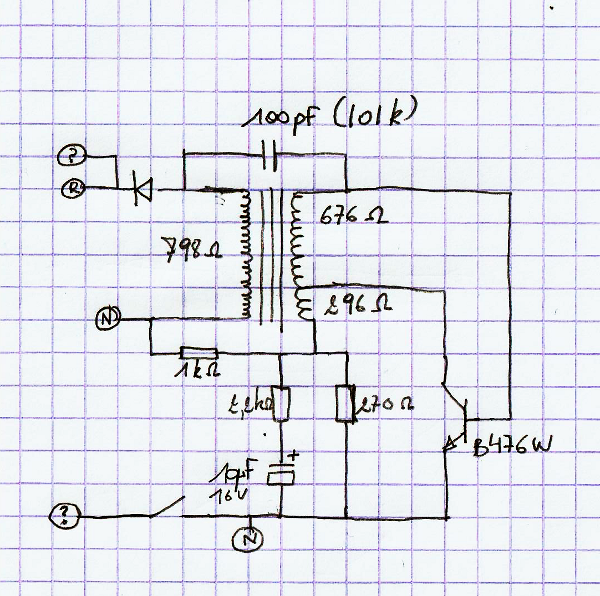 100pF (101k)
?
R
676 Ω
798 Ω
296 Ω
N
1kΩ
2,2kΩ
270 Ω
B476W
10µF
16V
+
?
N